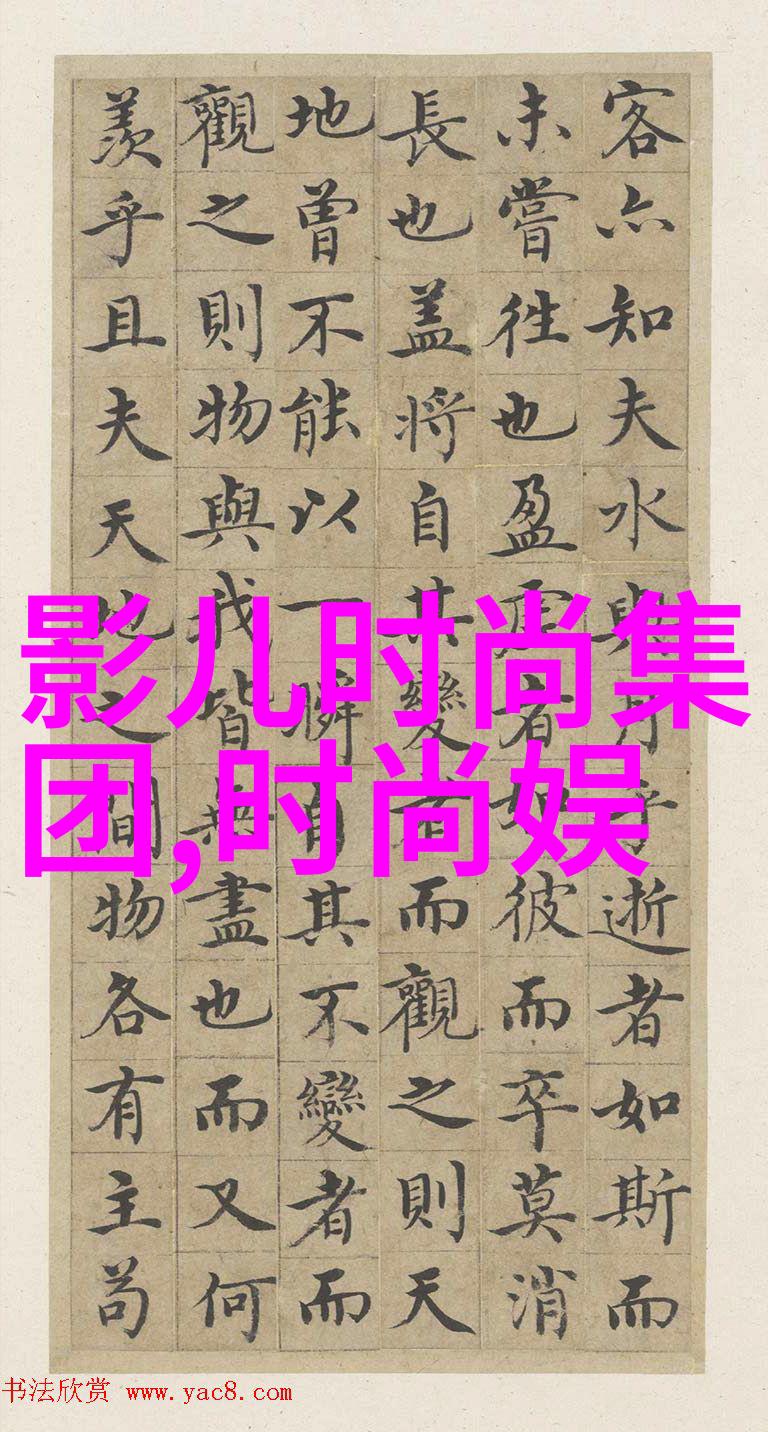 客亦知夫水與月乎逝者如斯而
未嘗往也盈虛者如彼而卒莫消
長也盖將自其變者而觀之則天
地曾不能以一瞬自其不變者而
觀之則物與我皆無盡也而又何
羨乎且夫天地之間物各有主苟
影儿时尚集
团,时尚娱
书法欣赏 www.yac8.com